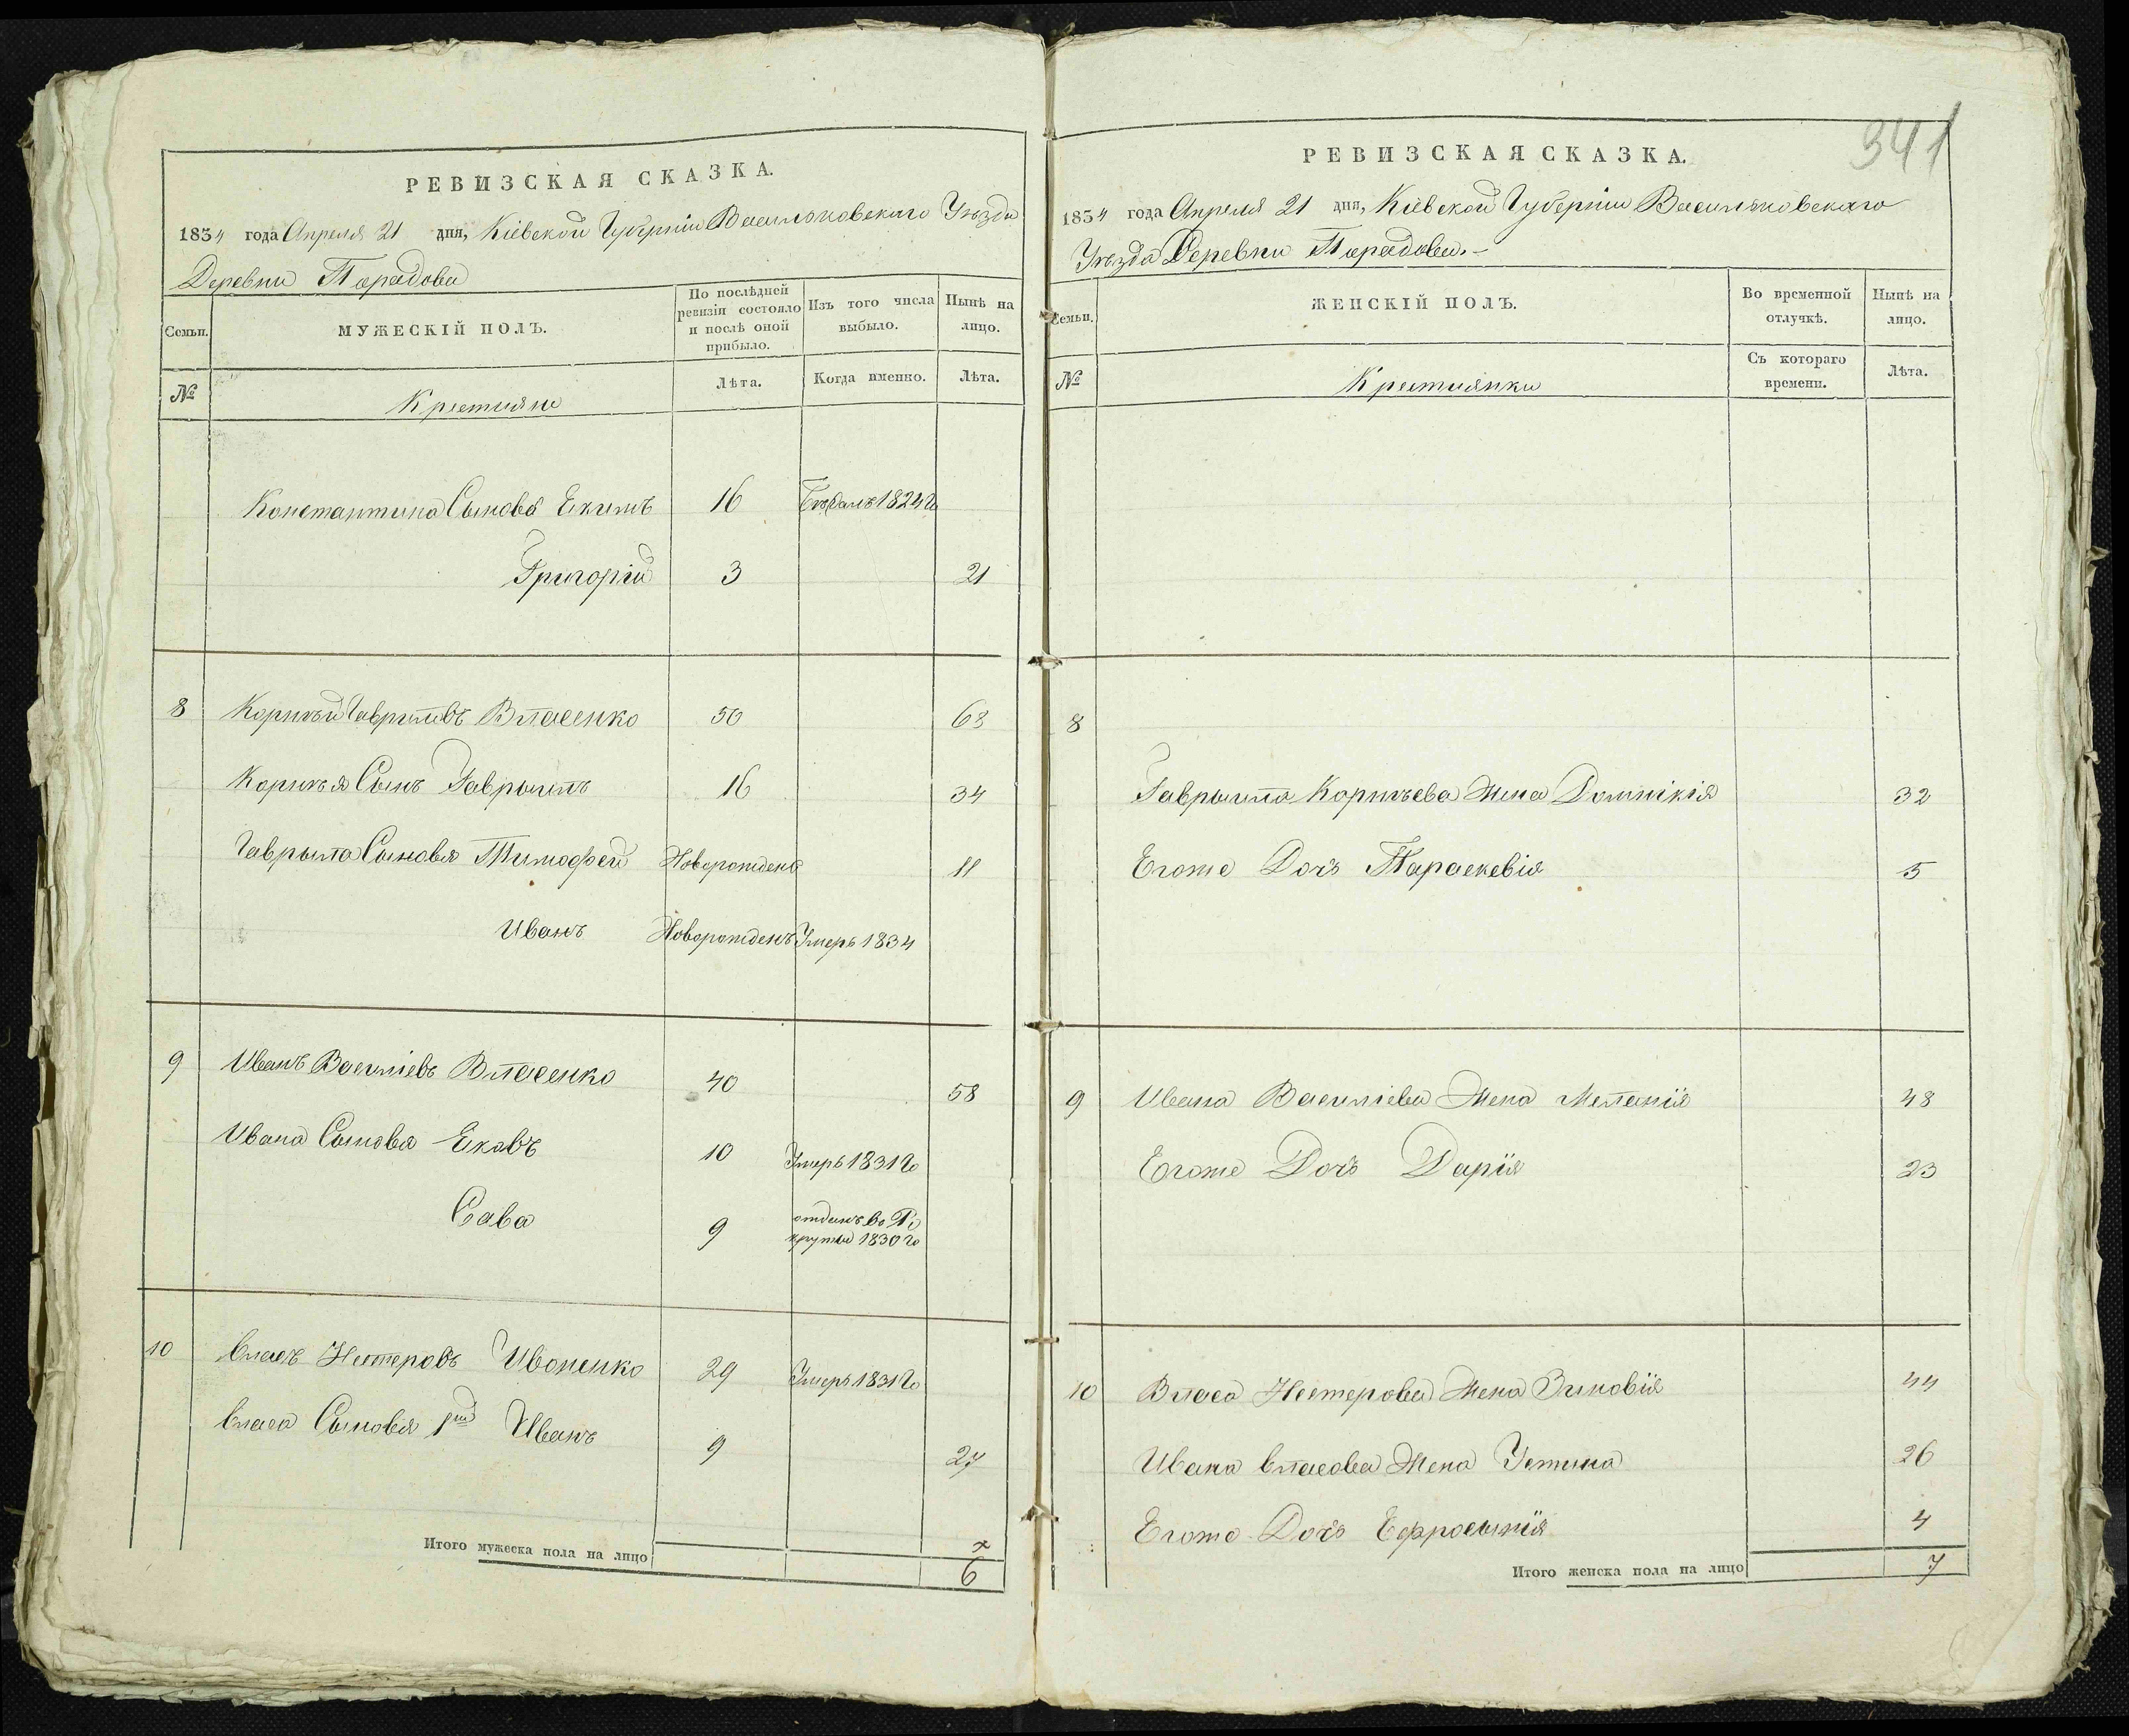 РЕВИЗСКАЯ СКАЗКА.
1834 года Апреля 21 дня, Кіевской Губерніи Васильковскаго Уѣзда
Деревни Парадовки
Семьи.
МУЖЕСКІЙ ПОЛЪ.
По послѣдней
ревизіи состояло
и послѣ оной
прибыло.
Изъ того числа
выбыло.
Нынѣ на
лицо.
№
Крестияне
Лѣта.
Когда именно.
Лѣта.
Константина Сыновя Екимъ 16 1824го
Григорій 3 21
8 Корнѣй Гавриловъ Власенко 50 68
Корнѣя Сынъ Гаврыилъ 16 34
Гаврыла Сыновя Тимофей Новорожденъ 11
Иванъ Новорожденъ Умеръ 1834
9 Иванъ Василіевъ Власенко 40 58
Ивана Сыновя Еховъ 10 Умеръ 1831го
Сава 9 отданъ во Ре
круты 1830го
10 Власъ Нестеровъ Ивоненко 29 Умеръ 1831го
Власа Сыновія 1ый Иванъ 9 27
Итого мужеска пола на лицо 6
341
РЕВИЗСКАЯ СКАЗКА.
1834 года Апреля 21 дня, Кіевской Губерніи Васильковскаго
Уѣзда Деревни Парадовки.-
Семьи.
ЖЕНСКІЙ ПОЛЪ.
Во временной
отлучкѣ.
Нынѣ на
лицо.
№
Крестиянки
Съ котораго
времени.
Лѣта.
8
Гаврыила Корнѣева Жена Домникія 32
Егоже Дочъ Параскевія 5
9 Ивана Василіева Жена Меланія 48
Егоже Дочъ Дарія 23
10 Власа Нестерова Жена Зиновія 44
Ивана Власова Жена Устина 26
Егоже Дочъ Ефросынія 4
Итого женска пола на лицо 7